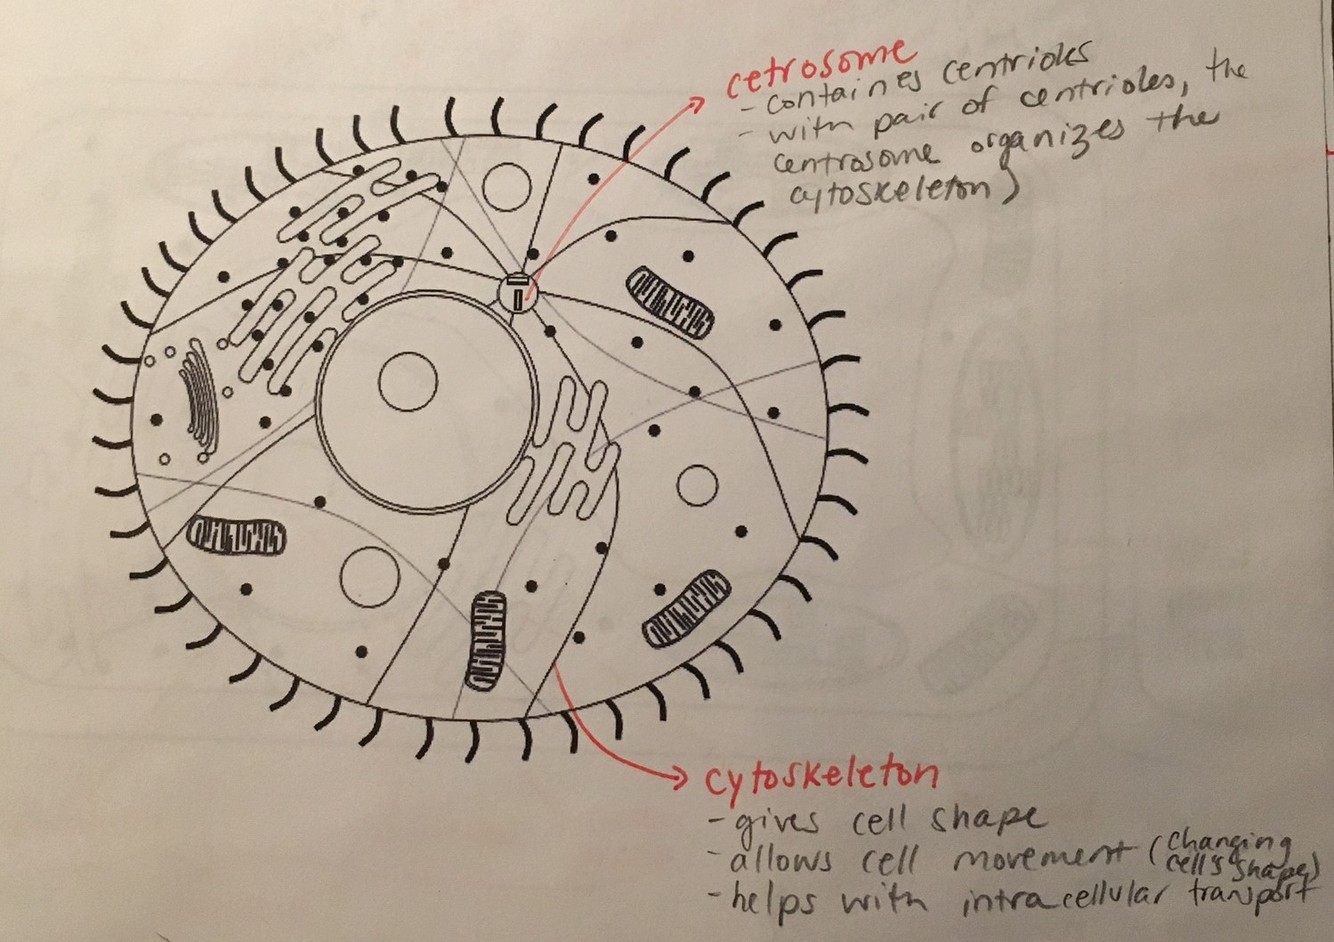 cetrosome
- containes centrioles
- with pair of centrioles, the
centrosome organizes the
cytoskeleton)
cytoskeleton
- gives cell shape
- allows cell movement (changing
cell's shape)
- helps with intracellular transport